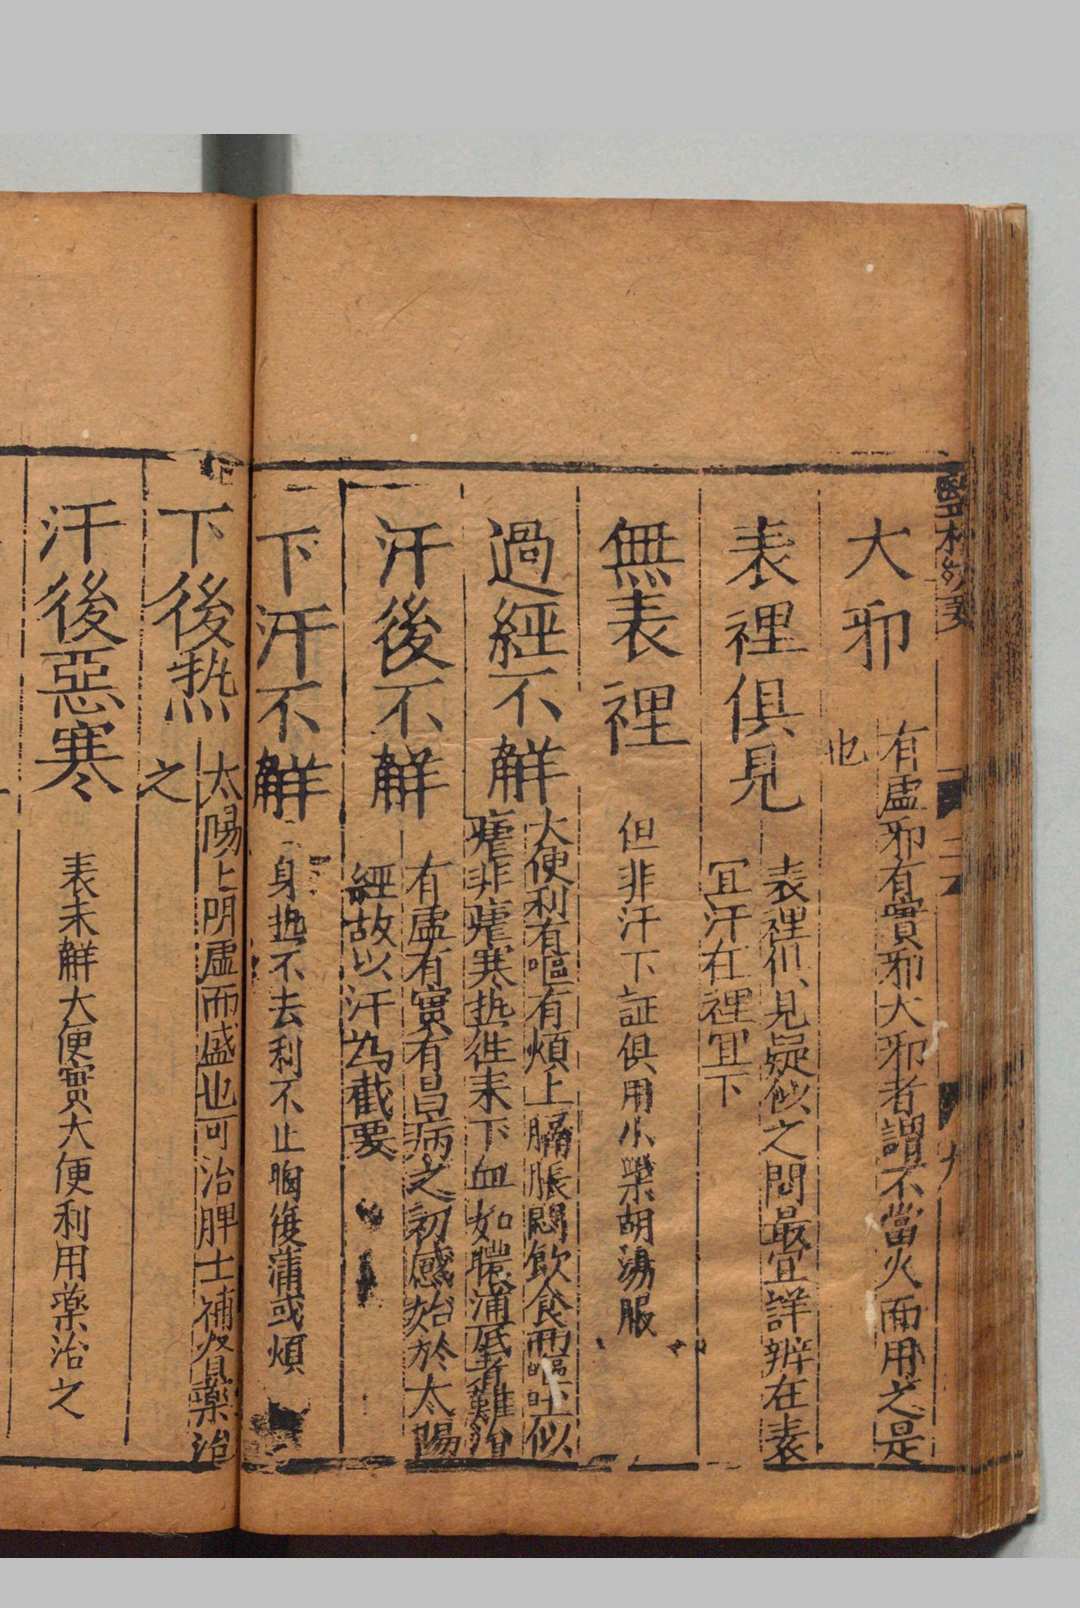 大邪
有虛邪有實邪大邪者謂不當火而用之是
也
表裡俱見
表裡俱見疑似之間最宜詳辨在表
宜汗在裡宜下
無表裡
但非汗下証俱用小柴胡湯服
過經不觧
大便利有嘔有煩上膈脹悶飲食而嘔吐似
瘧非瘧寒热往来下血如
汗後不觧
有虛有實有昌病之初感始於太陽
經故以汗為截要
下汗不觧
身热不去利不止胸復蒲或煩
下後热
太陽上明虛而盛也可治脾士補脊藥治
之
汗後惡寒
表未觧大便實大便利用藥治之